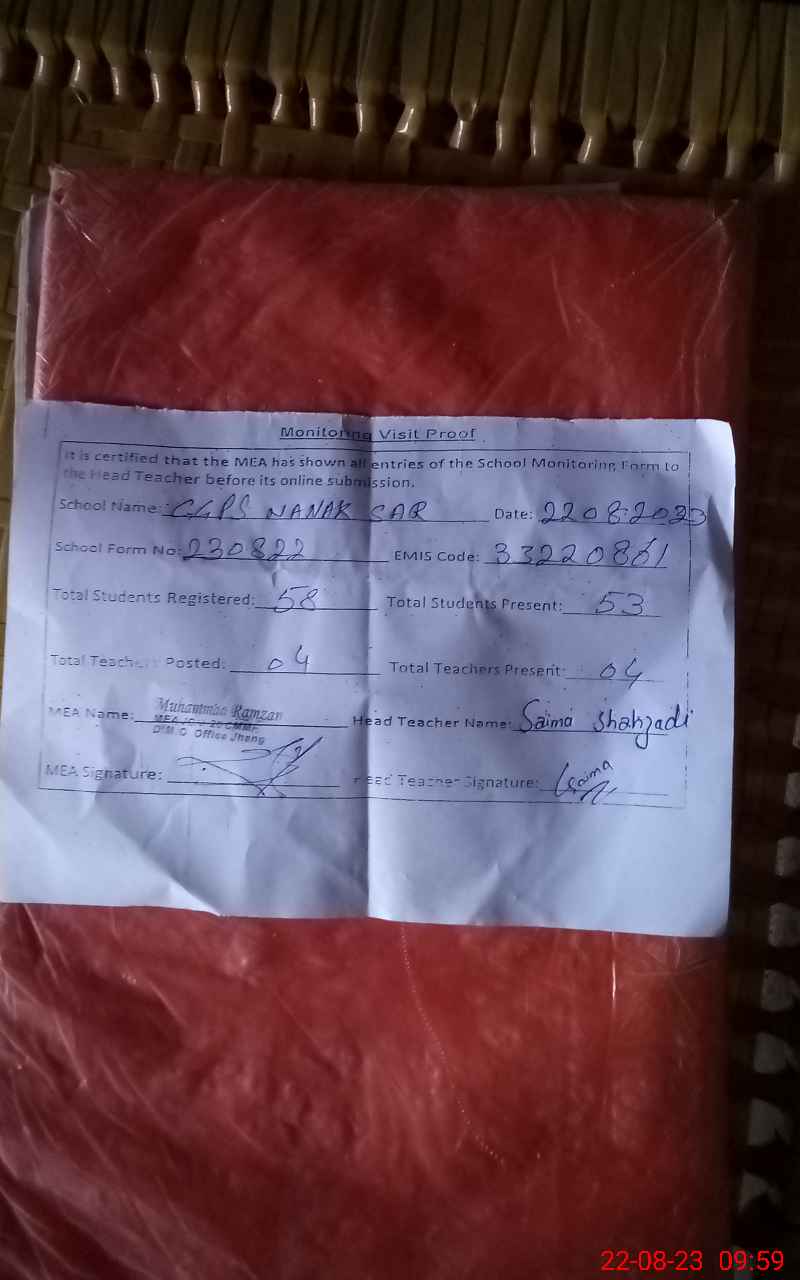 Monitoring Visit Proof
It is certified that the MEA has shown all entries of the School Monitoring Form to
the Head Teacher before its online submission.
School Name: GGPS NANAK SAR Date: 2208-2023
School Form No: 230822 EMIS Code: 33220861
Total Students Registered: 58 Total Students Present: 53
Total Teachers Posted: 04 Total Teachers Present: 04
MEA Name: Muhammad Ramzan Head Teacher Name: Saima Shahzadi
D.M.O Office Jhang
MEA Signature: Head Teacher Signature: Saima
22-08-23 09:59